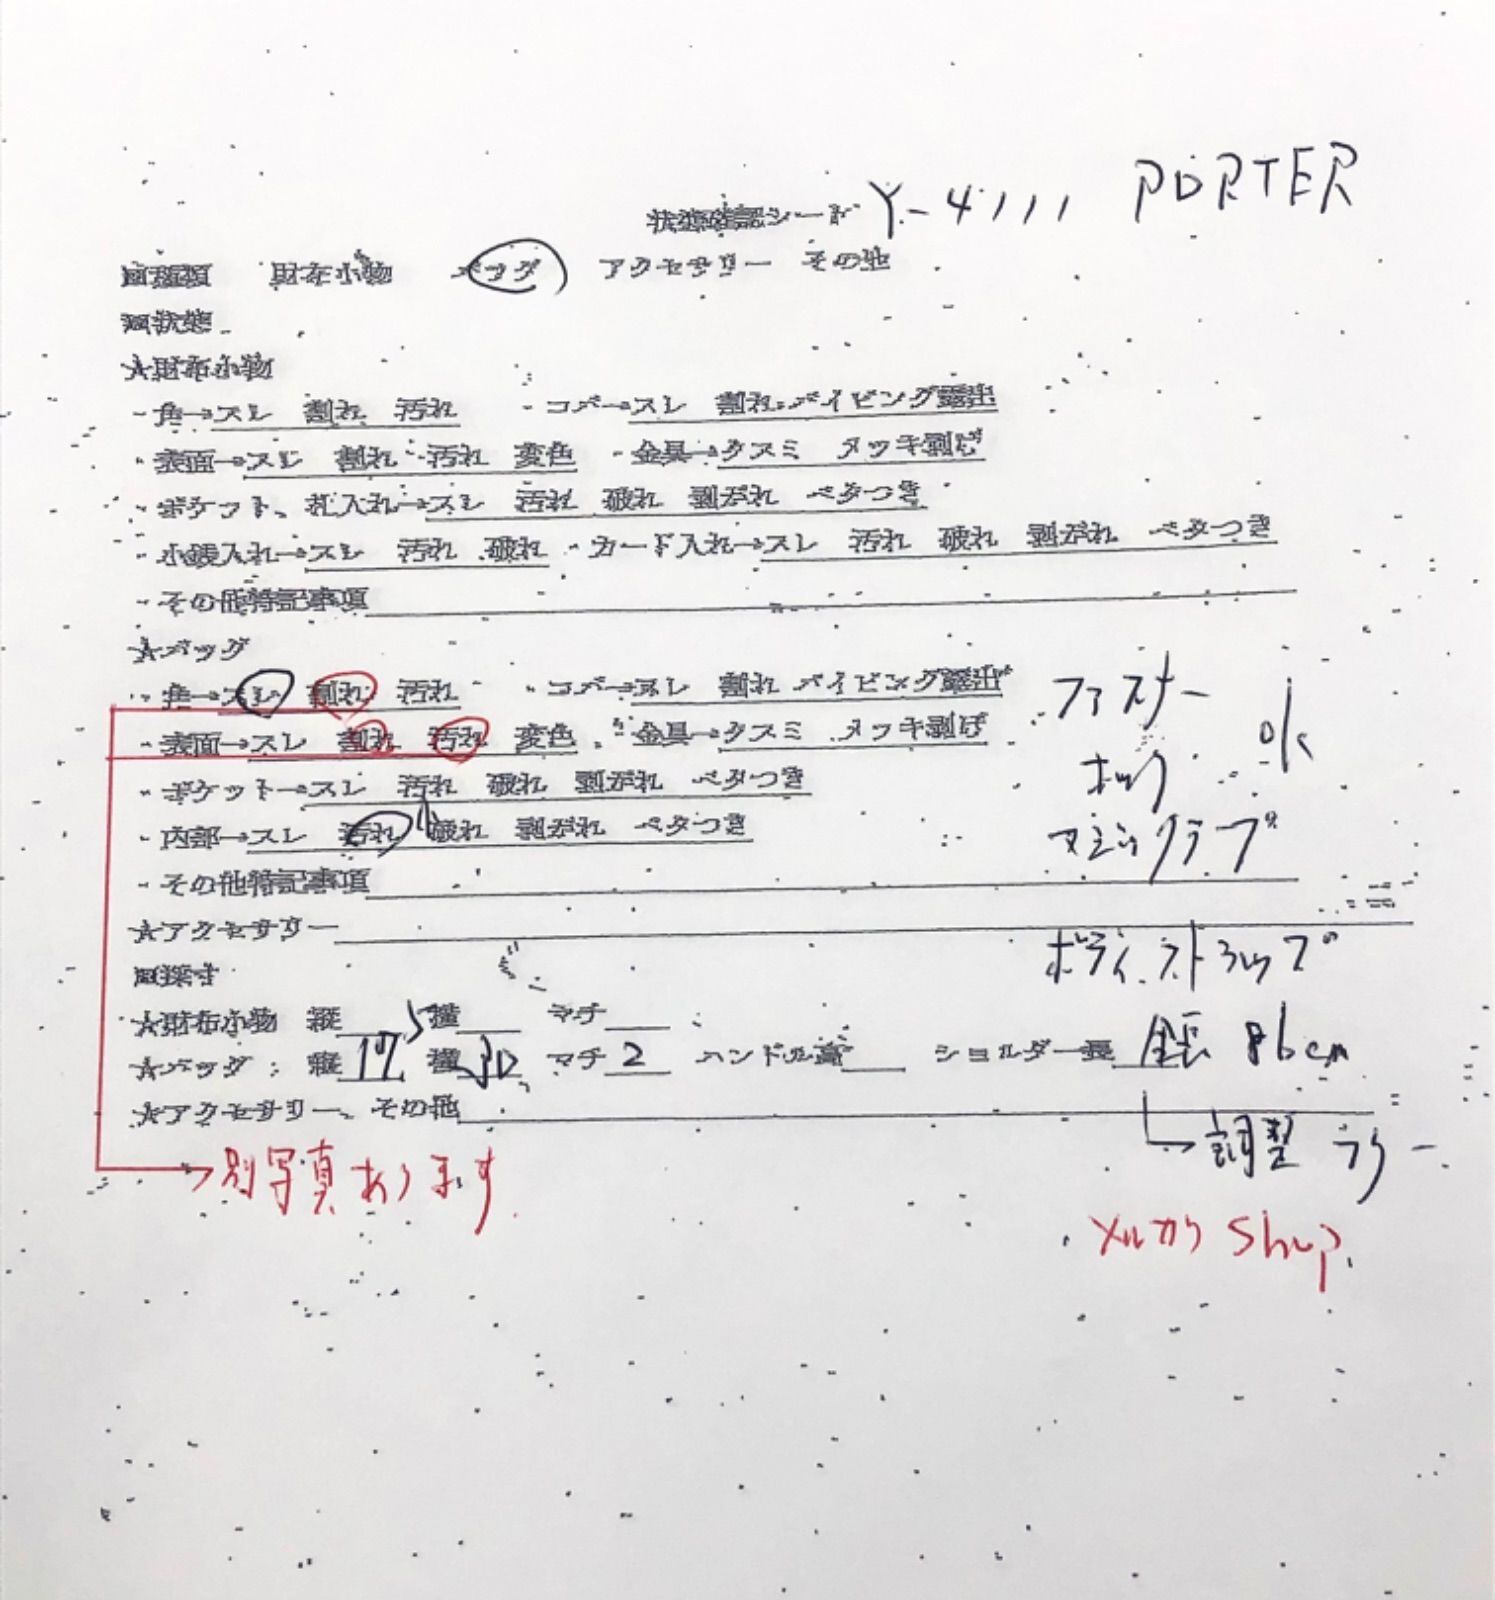 状態確認シート Y-4111 PORTER
□種類 財布小物 バッグ アクセサリー その他
□状態
★財布小物
・角→スレ 割れ 汚れ ・コバ→スレ 割れ パイピング露出
・表面→スレ 割れ 汚れ 変色 ・金具→クスミ メッキ剥げ
・ポケット、札入れ→スレ 汚れ 破れ 剥がれ ベタつき
・小銭入れ→スレ 汚れ 破れ ・カード入れ→スレ 汚れ 破れ 剥がれ ベタつき
・その他特記事項
★バッグ
・角→スレ 割れ 汚れ ・コバ→スレ 割れ パイピング露出
ファスナー
・表面→スレ 割れ 汚れ 変色 ・金具→クスミ メッキ剥げ
ホック ok
・ポケット→スレ 汚れ 破れ 剥がれ ベタつき
・内部→スレ 汚れ 破れ 剥がれ ベタつき
マジックテープ
・その他特記事項
★アクセサリー
ボディ ストラップ
□採寸
★財布小物 縦 横 マチ
★バッグ: 縦 横30 マチ2 ハンドル高 ショルダー長 全長 86cm
★アクセサリー、その他
→調整
→別写真あります
メルカリ Shop